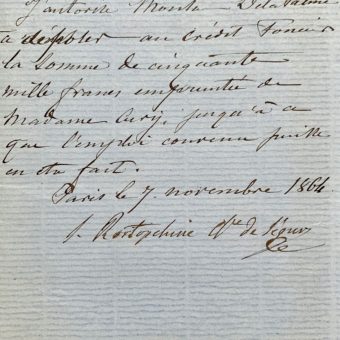 J'autorise
à déposer au Crédit Foncier
la somme de cinquante
mille francs empruntée de
Madame Cury, jusqu'à ce
que l'emploi convenu puisse
en être fait.
Paris le 7. novembre 1864
S. Rostopchine Ctesse de Ségur